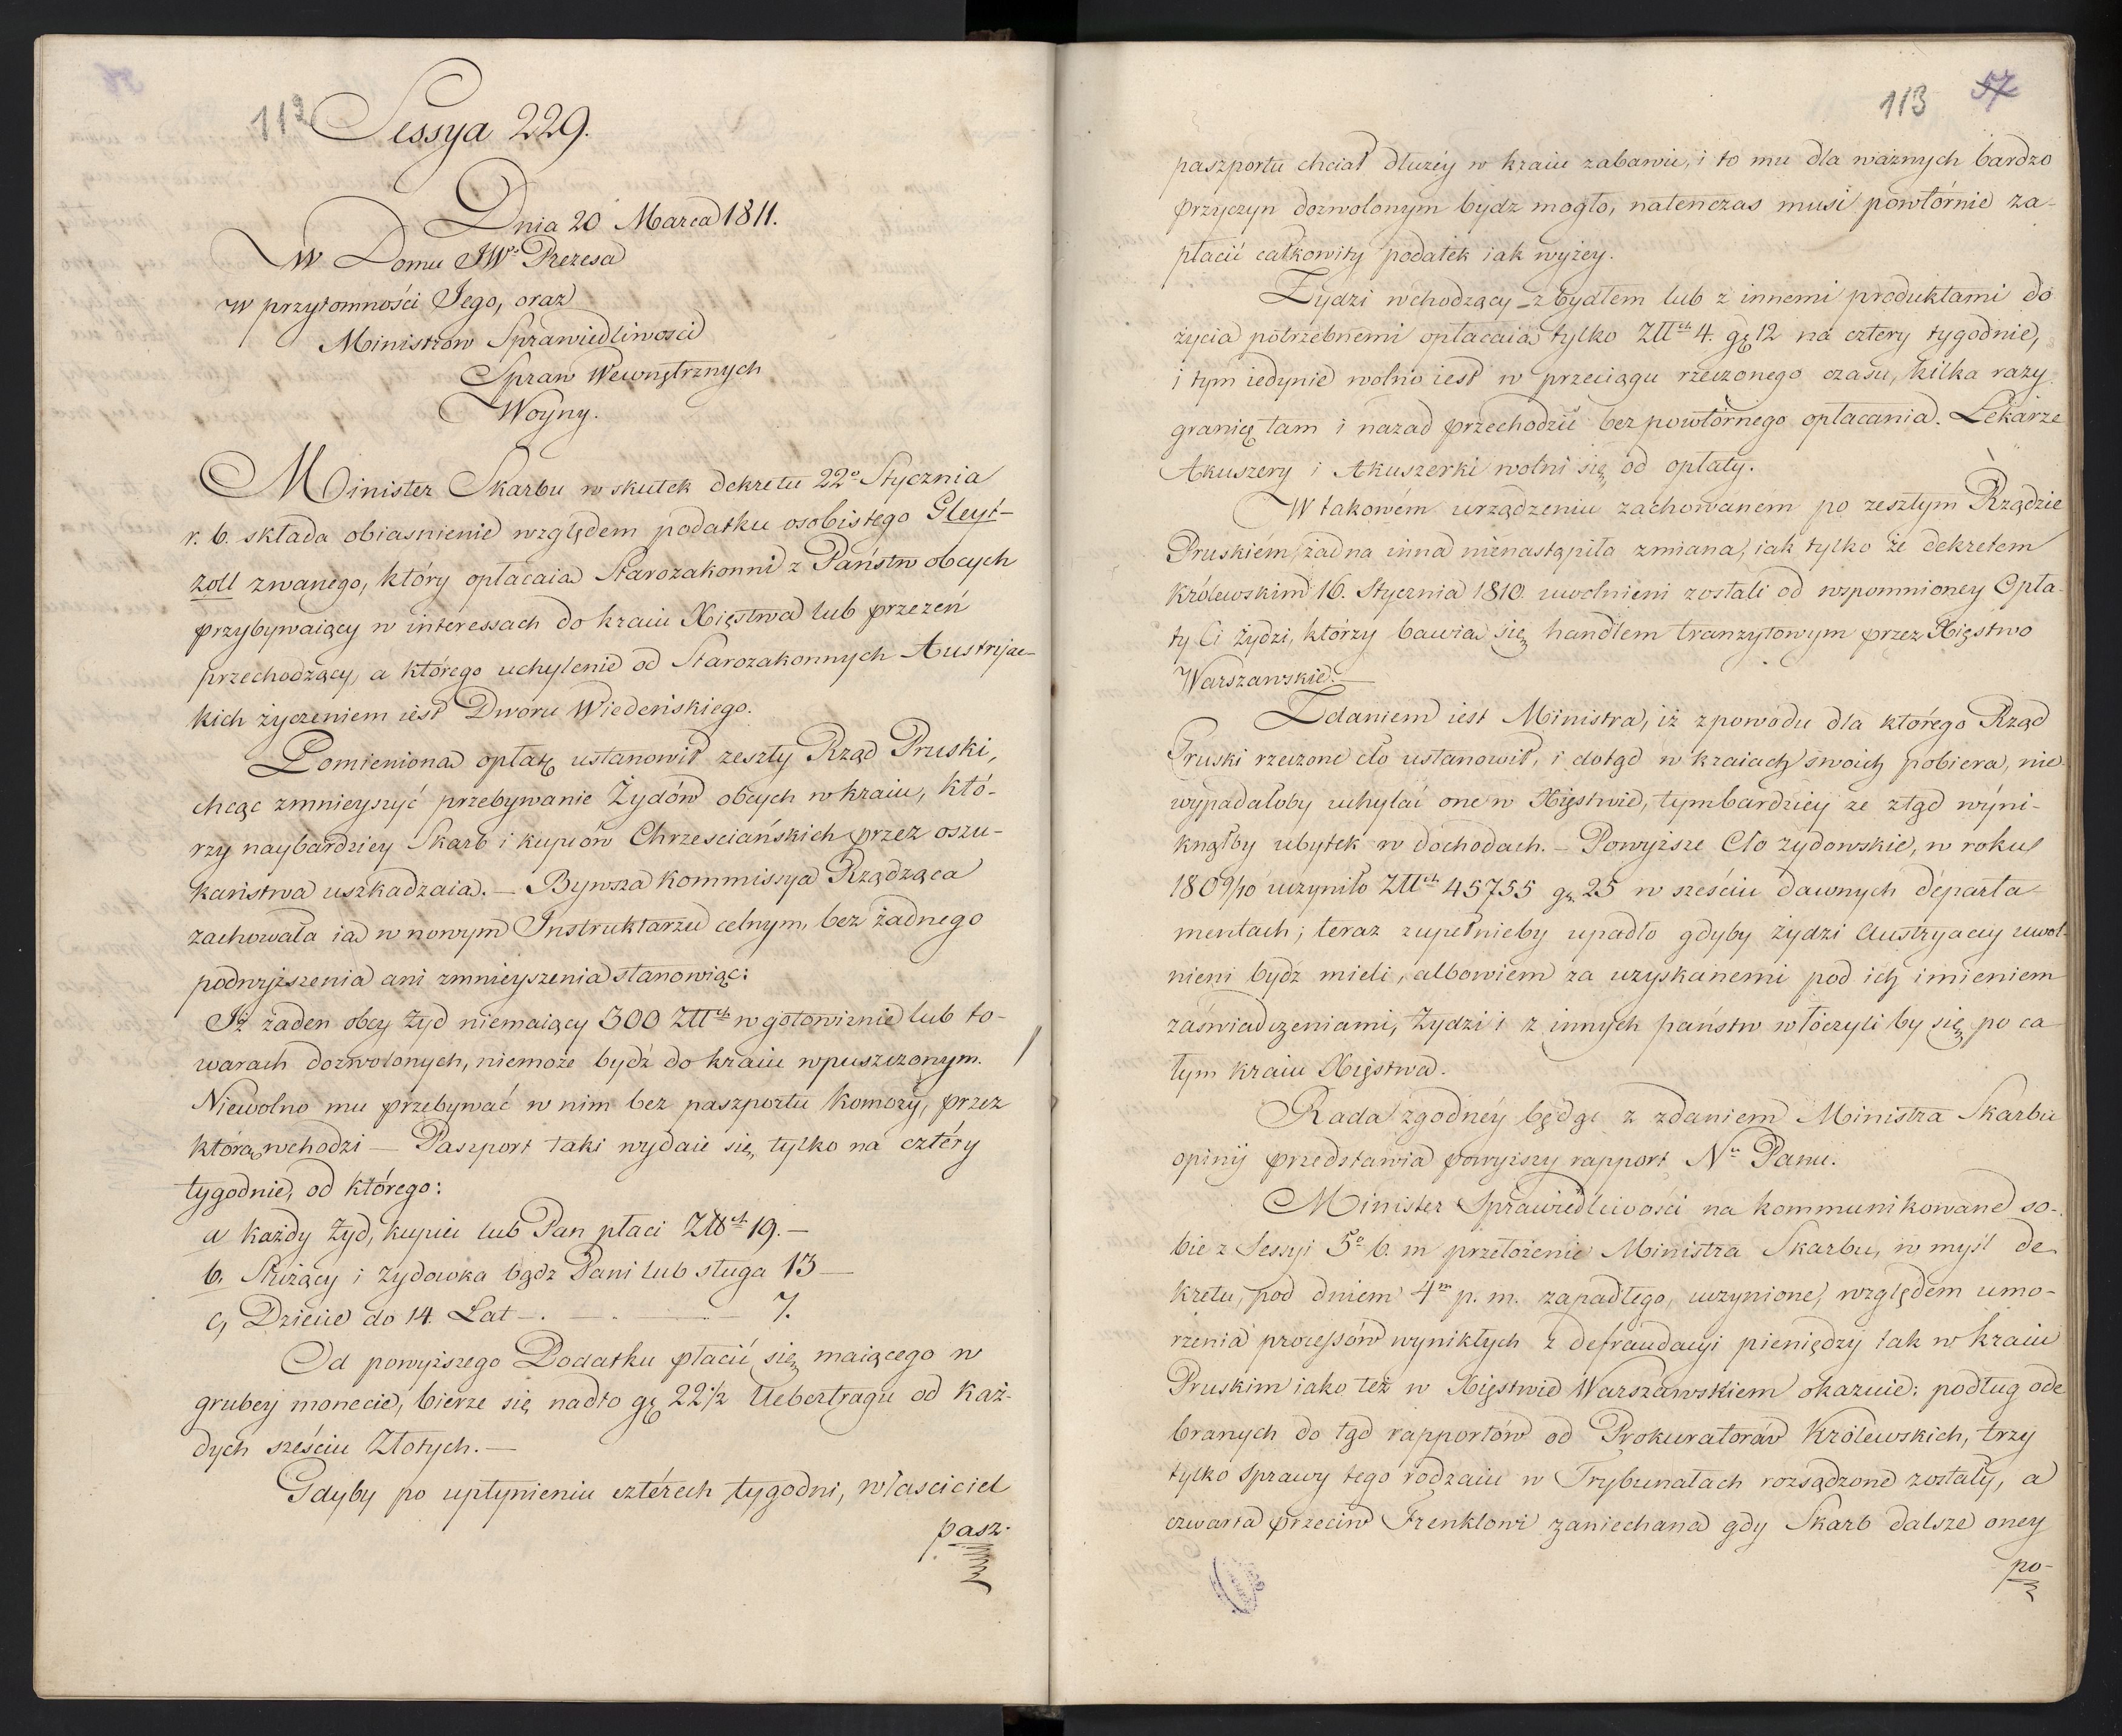 112
Sessya 229.
Dnia 20 Marca 1811.
W Domu JWo Prezesa
w przytomności Jego, oraz
Ministrów Sprawiedliwości
Spraw Wewnętrznych
Woyny.
Minister Skarbu w skutek dekretu 22o Stycznia
r. b. składa obiasnienie względem podatku osobistego Gleyt-
zoll zwanego, który opłacaią Starozakonni z Państw obcych
przybywaiący w interessach do kraiu Xięstwa lub przezeń
przechodzący, a którego uchylenie od Starozakonnych Austryac-
kich życzeniem iest Dworu Wiedeńskiego.
Pomienioną opłatę ustanowił zeszły Rząd Pruski,
chcąc zmnieyszyć przebywanie Żydów obcych w kraiu, któ-
rzy naybardziey Skarb i kupców Chrzesciańskich przez oszu-
kaństwa uszkadzaią. – Bywsza Kommissya Rządząca
zachowała ią w nowym Instruktarzu celnym, bez żadnego
podwyższenia ani zmnieyszenia stanowiąc:
Iż żaden obcy Żyd niemaiący 300 Złłch w gotowiznie lub to-
warach dozwolonych, niemoże bydź do kraiu wpuszczonym.
Niewolno mu przebywać w nim bez paszportu Komory, przez
którą wchodzi – Paszport taki wydaie się, tylko na cztéry
tygodnie, od którego:
a/ każdy Żyd, kupiec lub Pan płaci Złłch 19. –
b. Służący i żydowka bądz Pani lub sługa 13 –
c, Dziecie do 14. Lat – . – . – 7.
Od powyższego Podatku płacić się maiącego w
grubey monecie, bierze się nadto gę 22 1/2 Uebertragu od każ-
dych sześciu Złotych. –
Gdyby po upłynieniu cztérech tygodni, właściciel
pasz-
113 57
paszportu chciał dłużéy w kraiu zabawić, i to mu dla ważnych bardzo
przyczyn dozwolonym bydz mogło, natenczas musi powtórnie za-
płacić całkowity podatek iak wyżey.
Żydzi wchodzący z bydłem lub z innemi produktami do
życia potrzebnemi opłacaią tylko Złłch 4. gę 12 na cztery tygodnie,
i tym iedynie wolno iest w przeciągu rzeczonego czasu, kilka razy
granicę tam i nazad przechodzić bez powtórnego opłacania. Lekarze
Akuszery i Akuszerki wolni są od opłaty.
W takowém urządzeniu zachowanem po zeszłym Rządzie
Pruskiém, żadna inna nienastąpiła zmiana, iak tylko że dekretem
Królewskim 16. Stycznia 1810. uwolnieni zostali od wspomnioney Opła-
ty Ci Żydzi, którzy bawią się handlem tranzytowym przez Xięstwo
Warszawskie. –
Zdaniem iest Ministra, iż zpowodu dla którego Rząd
Pruski rzeczone cło ustanowił, i dotąd w kraiach swoich pobiera, nie-
wypadałoby uchylać one w Xięstwie, tymbardziey że ztąd wyni-
knąłby ubytek w dochodach. – Powyższe Cło żydowskie, w roku
1809/10 uczyniło Złłch 45755 gę. 25 w sześciu dawnych departa-
mentach; teraz zupełnieby upadło gdyby żydzi Austryaccy uwol-
nieni bydź mieli, albowiem za uzyskanemi pod ich imieniem
zaświadczeniami, Żydzi i z innych państw włóczyli by się po ca-
łym kraiu Xięstwa.
Rada zgodnéy będąc z zdaniem Ministra Skarbu
opinij przedstawia powyższy rapport Nu Panu.
Minister Sprawiedliwości na kommunikowane so-
bie z Sessyi 5o b. m przełożenie Ministra Skarbu, w myśl de-
kretu, pod dniem 4m p. m. zapadłego, uczynione, względem umo-
rzenia processów wynikłych z defraudacyi pieniędzy tak w kraiu
Pruskim iako też w Xięstwie Warszawskiem okazuie: podług ode-
branych do tąd rapportów od Prokuratorów Królewskich, trzy
tylko sprawy tego rodzaiu w Trybunałach rozsądzone zostały, a
czwarta przeciw Frenklowi zaniechana gdy Skarb dalsze oney
po-